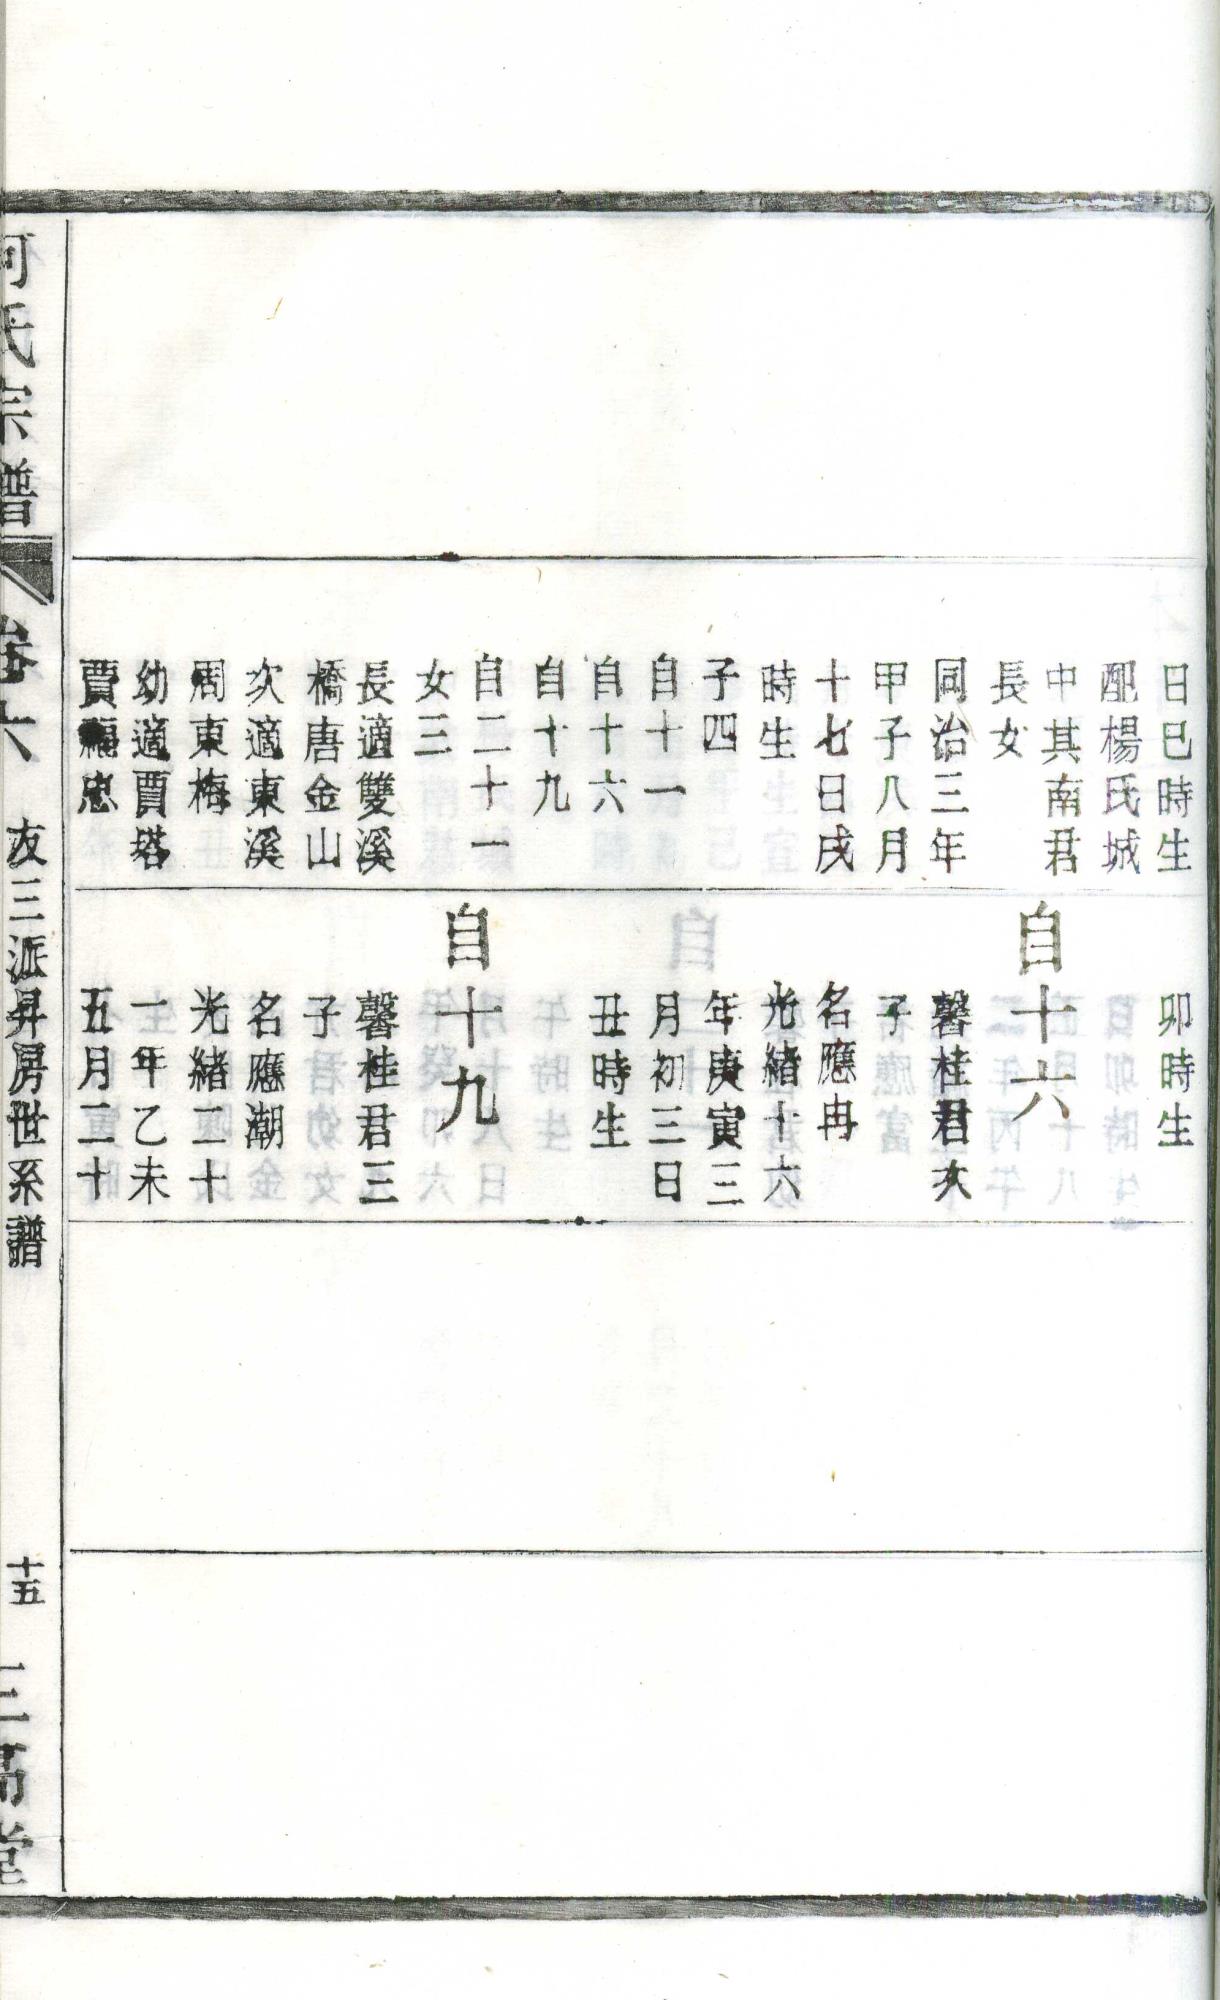 日巳時生
配楊氏城
中其南君
長女
同治三年
甲子八月
十七日戌
時生
子四
自十一
自十六
自十九
自二十一
女三
長適雙溪
橋唐金山
次適東溪
周東梅
幼適賈塔
賈福忠
卯時生
自十六
馨桂君次
子
名應冉
光緒十六
年庚寅三
月初三日
丑時生
自十九
馨桂君三
子
名應潮
光緒二十
一年乙未
五月二十
何氏宗譜
卷六
友三派昇房世系譜
十五
三高堂